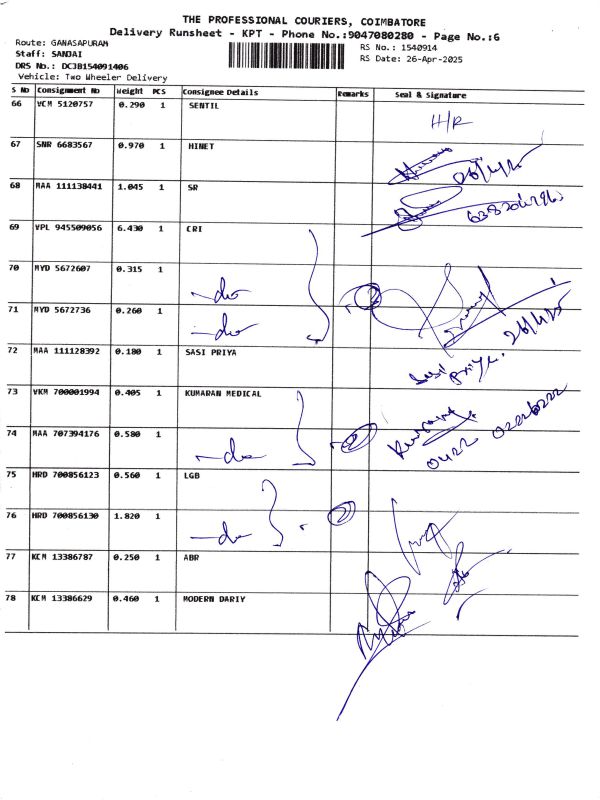 THE PROFESSIONAL COURIERS, COIMBATORE
Delivery Runsheet - KPT - Phone No.:9047080280 - Page No.:6
Route: GANASAPURAM
Staff: SANJAI
DRS No.: DCJB154091406
Vehicle: Two Wheeler Delivery
RS No.: 1540914
RS Date: 26-Apr-2025
S No Consignment No Weight PCS Consignee Details Remarks Seal & Signature
66 VCM 5120757 0.290 1 SENTIL H/R
67 SNR 6683567 0.970 1 HINET 26/4/25
68 MAA 111138441 1.045 1 SR
69 VPL 945509056 6.430 1 CRI
70 MYD 5672607 0.315 1 -do 2
71 MYD 5672736 0.260 1 -do 26/4/25
72 MAA 111128392 0.180 1 SASI PRIYA Sasi Priya.
73 VKM 700001994 0.405 1 KUMARAN MEDICAL
74 MAA 707394176 0.580 1 -do 2 0422
75 HRD 700856123 0.560 1 LGB
76 HRD 700856130 1.820 1 -do 2
77 KCM 13386787 0.250 1 ABR
78 KCM 13386629 0.460 1 MODERN DARIY